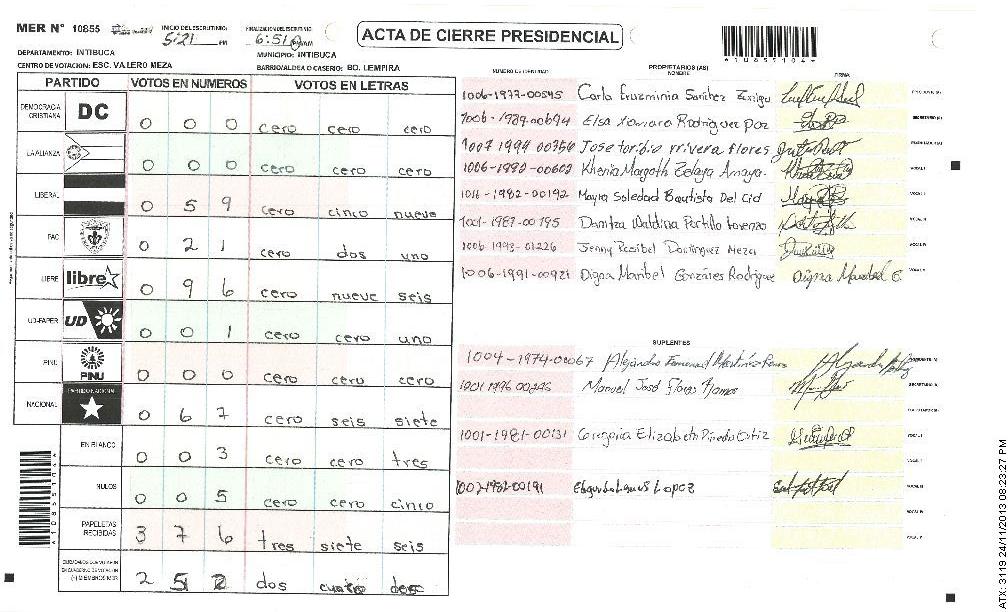 MER N° 10855 INICIO DEL ESCRUTINIO 5:21 PM FINALIZACION DEL ESCRUTINIO 6:51 PM
ACTA DE CIERRE PRESIDENCIAL
*10855104*
DEPARTAMENTO: INTIBUCA MUNICIPIO: INTIBUCA
CENTRO DE VOTACION: ESC. VALERO MEZA BARRIO/ALDEA O CASERIO: BO. LEMPIRA
PARTIDO VOTOS EN NUMEROS VOTOS EN LETRAS
DEMOCRACIA CRISTIANA DC 0 0 0 cero cero cero
LA ALIANZA 0 0 0 cero cero cero
LIBERAL 0 5 9 cero cinco nueve
PAC 0 2 1 cero dos uno
LIBRE libre 0 9 6 cero nueve seis
UD-FAPER UD 0 0 1 cero cero uno
PINU PINU 0 0 0 cero cero cero
NACIONAL PARTIDO NACIONAL 0 6 7 cero seis siete
EN BLANCO 0 0 3 cero cero tres
NULOS 0 0 5 cero cero cinco
PAPELETAS RECIBIDAS 3 7 6 tres siete seis
2 5 2 dos
NUMERO DE IDENTIDAD PROPIETARIOS (AS) NOMBRE FIRMA
1006-1977-00545 Carla Sanchez
1006-1989-00694 Elsa Xiomara Rodriguez Paz
1007 1994 00356 Jose toribio rrivera flores
Khenia Margoth Zelaya Amaya
1016-1982-00192 Mayra Soledad Bautista Del Cid
1001-1987-00195 Danitza Waldina Portillo Lorenzo
1006 1993-01226 Jenny Dominguez Meza
1006-1991-00921 Digna Maribel Gonzáles Rodrigue
SUPLENTES
1004-1974-00067 Alejandro Martínez
Manuel José Flores Ramos
1001-1981-00131 Gregoria Elizabeth Pineda Ortiz
1002-1982-00191 Lopez
ATX: 3119 24/11/2013 08:23:27 PM